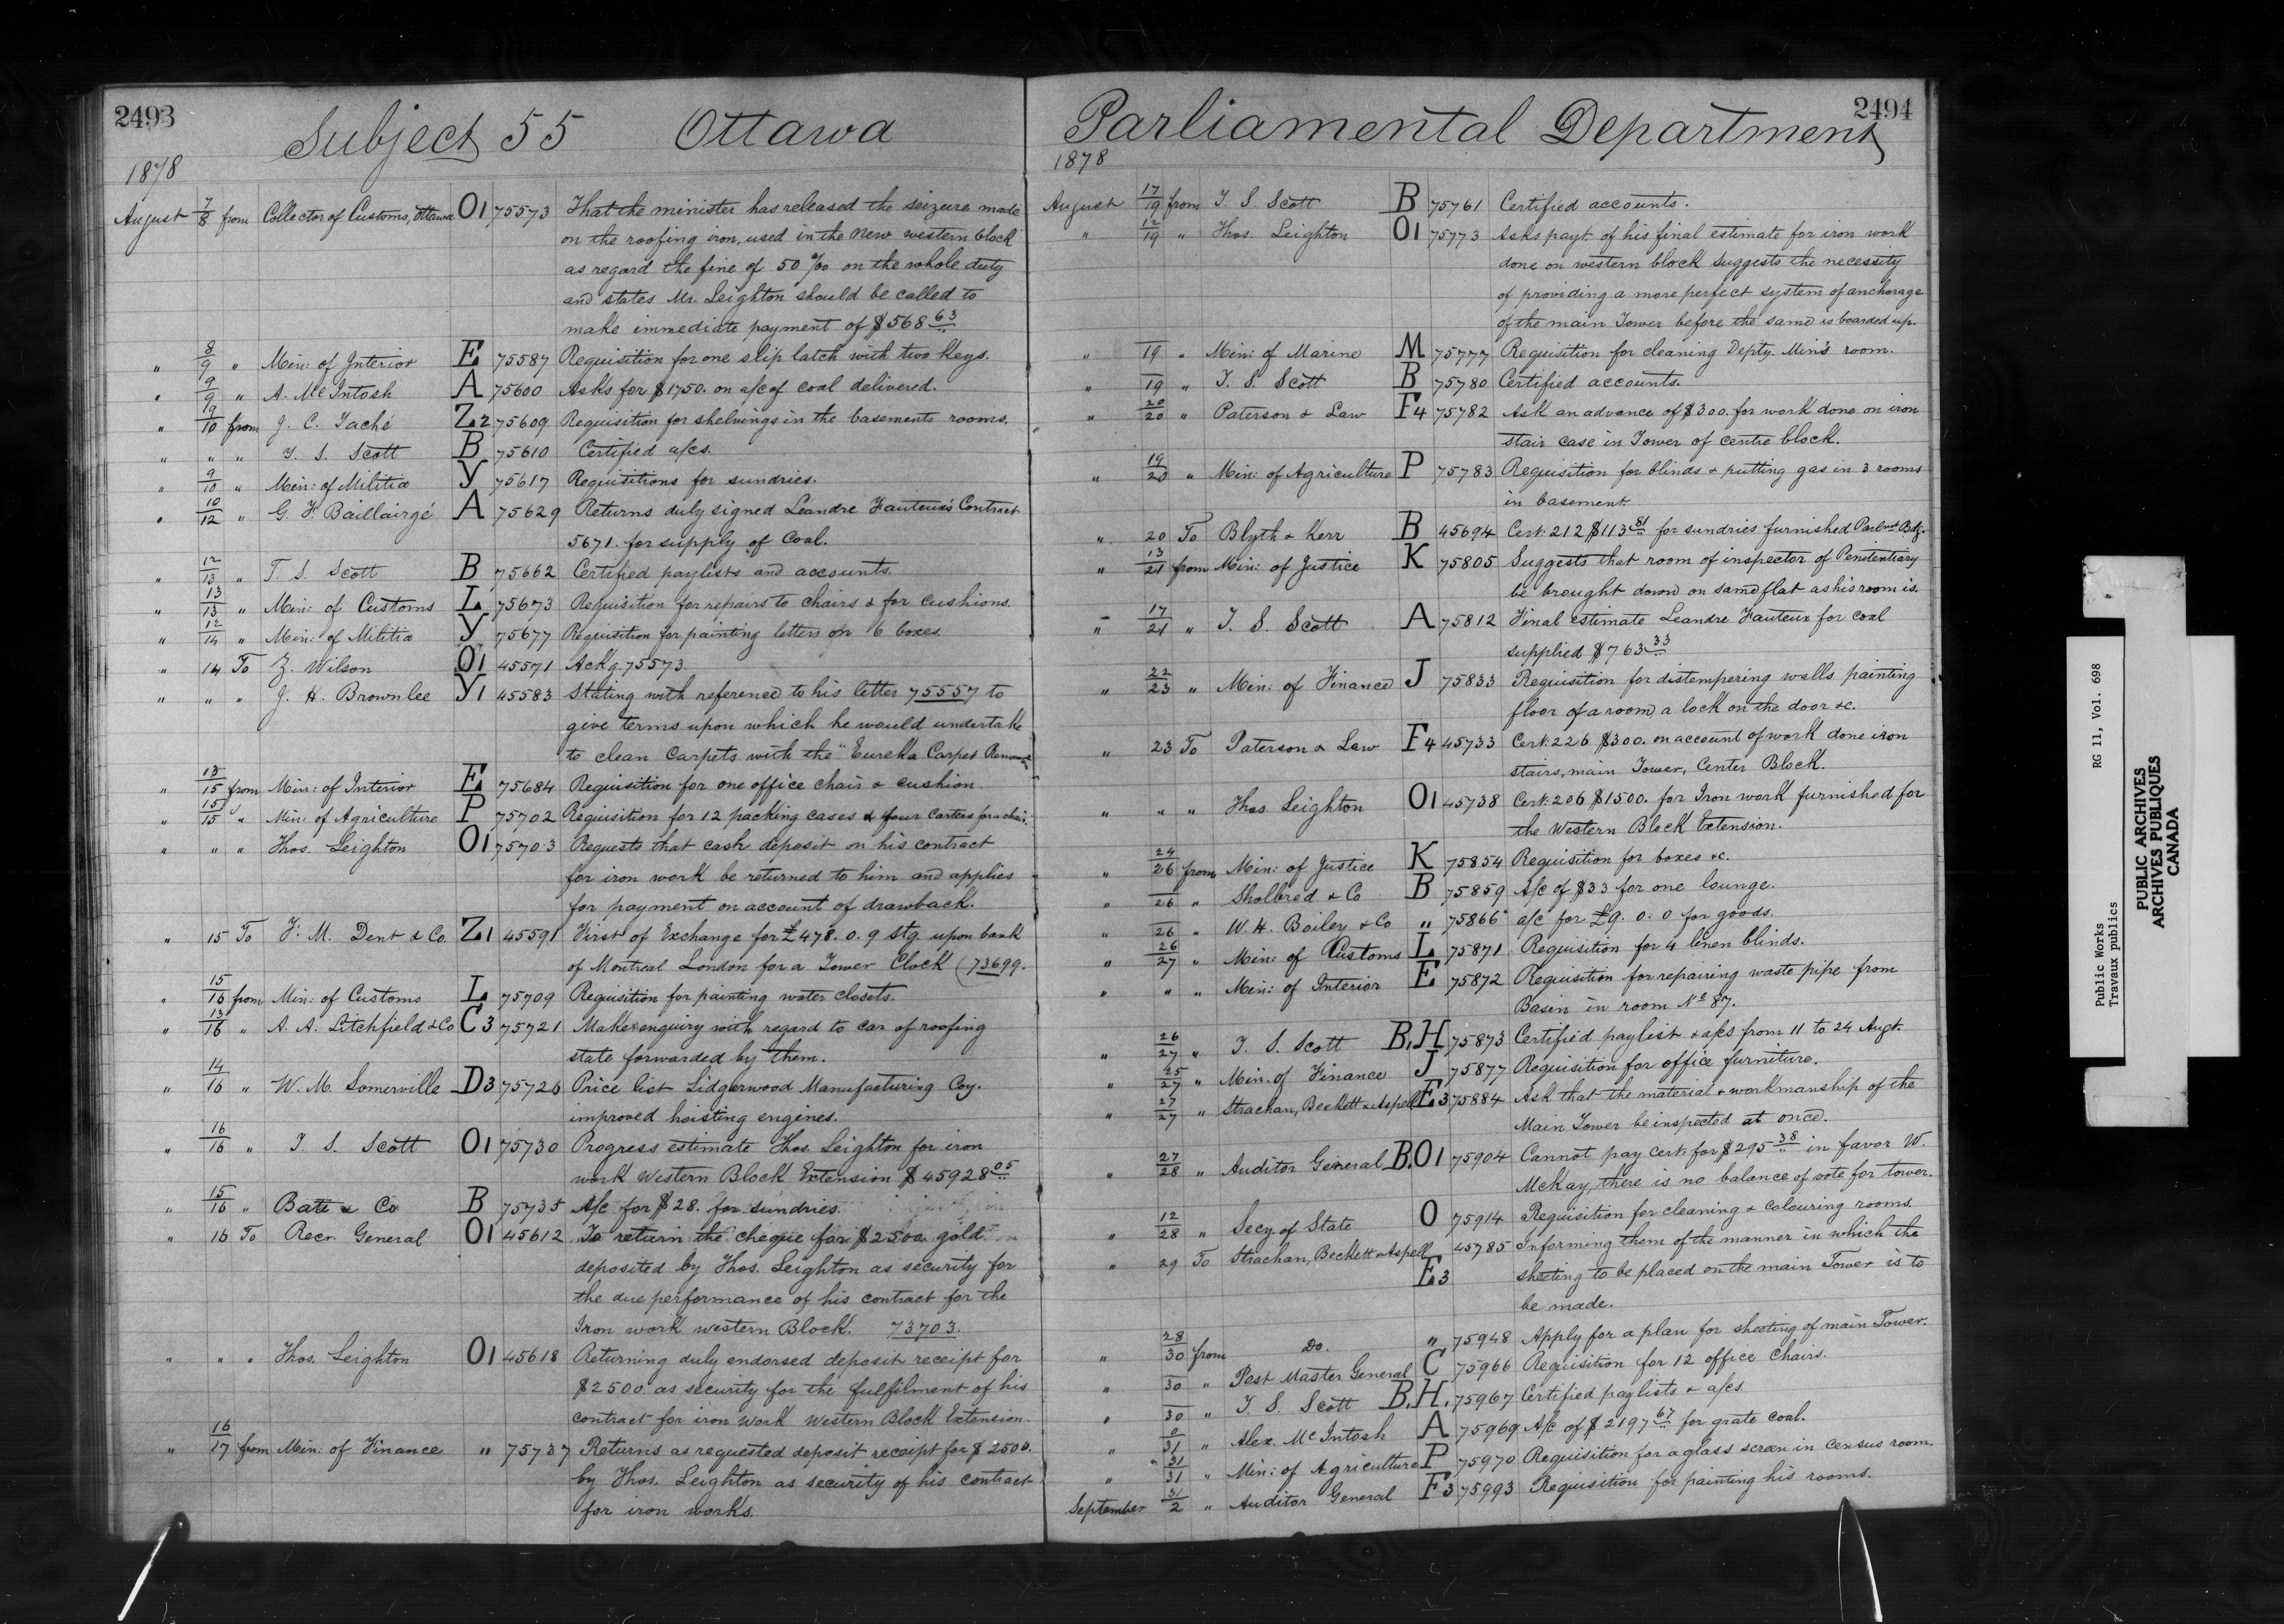 2493
Subject 55 Ottawa
1878
August 7/8 from Collector of Customs, Ottawa O1 75573 That the minister has released the seizure made
on the roofing iron, used in the New western block
as regard the fine of 50 % on the whole duty
and states Mr. Leighton should be called to
make immediate payment of $568 63
" 8/9 " Min: of Interior E 75587 Requisition for one slip latch with two keys.
" 9/9 " A. McIntosh A 75600 Asks for $1750. on a/c of coal delivered.
" 9/10 from J. C. Taché Z2 75609 Requisition for shelvings in the basements rooms.
" " " T. S. Scott B 75610 Certified a/cs.
" 9/10 " Min: of Militia Y 75617 Requisitions for sundries.
" 10/12 " G. F. Baillairgé A 75629 Returns duly signed Leandre Fauteux's Contract
5671. for supply of Coal.
" 12/13 " T. S. Scott B 75662 Certified paylists and accounts.
" 13/13 " Min: of Customs L 75673 Requisition for repairs to chairs & for cushions.
" 12/14 " Min: of Militia Y 75677 Requisition for painting letters on 6 boxes.
" 14 To Z. Wilson O1 45571 Ackg. 75573.
" " " J. H. Brownlee Y1 45583 Stating with reference to his letter 75557 to
give terms upon which he would undertake
to clean Carpets with the "Eureka Carpet
" 13/15 from Min: of Interior E 75684 Requisition for one office chair & cushion.
" 15/15 " Min: of Agriculture P 75702 Requisition for 12 packing cases & four castors for a chair.
" " " Thos. Leighton O1 75703 Requests that cash deposit on his contract
for iron work be returned to him and applies
for payment on account of drawback.
" 15 To F. M. Dent & Co. Z1 45591 First of Exchange for £478. 0. 9 Stg. upon bank
of Montreal London for a Tower Clock (73699.
" 15/16 from Min: of Customs L 75709 Requisition for painting water closets.
" 13/16 " A. A. Litchfield & Co C3 75721 Makes enquiry with regard to car of roofing
slate forwarded by them.
" 14/16 " W. M. Somerville D3 75726 Price list Lidgerwood Manufacturing Coy.
improved hoisting engines.
" 16/16 " T. S. Scott O1 75730 Progress estimate Thos. Leighton for iron
work Western Block Extension $45928 05
" 15/16 " Bate & Co B 75735 A/c for $28. for sundries.
" 16 To Recr. General O1 45612 To return the cheque for $2500. gold
deposited by Thos. Leighton as security for
the due performance of his contract for the
Iron work western Block. 73703.
" " " Thos. Leighton O1 45618 Returning duly endorsed deposit receipt for
$2500. as security for the fulfilment of his
contract for iron work Western Block Extension.
" 16/17 from Min: of Finance " 75737 Returns as requested deposit receipt for $2500.
by Thos. Leighton as security of his contract
for iron works.
2494
Parliamental Department
1878
August 17/19 from T. S. Scott B 75761 Certified accounts.
" 12/19 " Thos. Leighton O1 75773 Asks payt. of his final estimate for iron work
done on western block suggests the necessity
of providing a more perfect system of anchorage
of the main Tower before the same is boarded up.
" 19 " Min: of Marine M 75777 Requisition for cleaning Depty. Min's room.
" 19 " T. S. Scott B 75780 Certified accounts.
" 20/20 " Paterson & Law F4 75782 Ask an advance of $300. for work done on iron
stair case in Tower of centre block.
" 19/20 " Min: of Agriculture P 75783 Requisition for blinds & putting gas in 3 rooms
in basement.
" 20 To Blyth & Kerr B 45694 Cert: 212 $113 81 for sundries furnished Parlmt Bdg.
" 13/21 from Min: of Justice K 75805 Suggests that room of inspector of Penitentiary
be brought down on same flat as his room is.
" 17/21 " T. S. Scott A 75812 Final estimate Leandre Fauteux for coal
supplied $763 33
" 22/23 " Min: of Finance J 75833 Requisition for distempering walls painting
floor of a room, a lock on the door &c.
" 23 To Paterson & Law F4 45733 Cert: 226 $300. on account of work done iron
stairs, main Tower, Center Block.
" " " Thos. Leighton O1 45738 Cert: 206 $1500. for Iron work furnished for
the Western Block Extension.
" 24/26 from Min: of Justice K 75854 Requisition for boxes &c.
" 26 " Sholbred & Co B 75859 A/c of $33 for one lounge.
" 26 " W. H. Boiley & Co " 75866 a/c for £9. 0. 0 for goods.
" 26/27 " Min: of Customs L 75871 Requisition for 4 linen blinds.
" " " Min: of Interior E 75872 Requisition for repairing waste pipe from
Basin in room No 87.
" 26/27 " T. S. Scott B, H 75873 Certified paylist & a/cs from 11 to 24 Augt.
" 25/27 " Min. of Finance J 75877 Requisition for office furniture.
" 27/27 " Strachan, Beckett & Aspell E3 75884 Ask that the material & workmanship of the
Main Tower be inspected at once.
" 27/28 " Auditor General B. O1 75904 Cannot pay cert: for $295 38 in favor W.
McKay, there is no balance of vote for tower.
" 12/28 " Secy. of State O 75914 Requisition for cleaning & colouring rooms.
" 29 To Strachan, Beckett & Aspell E3 45785 Informing them of the manner in which the
sheeting to be placed on the main Tower is to
be made.
" 28/30 from Do. " 75948 Apply for a plan for sheeting of main Tower.
" 30 " Post Master General C 75966 Requisition for 12 office chairs.
" 30 " T. S. Scott B. H. 75967 Certified paylists & a/cs
" 0/31 " Alex. McIntosh A 75969 A/c of $2197 67 for grate coal.
" 31/31 " Min: of Agriculture P 75970 Requisition for a glass screen in census room.
September 31/2 " Auditor General F3 75993 Requisition for painting his rooms.
Public Works RG 11, Vol. 698
Travaux publics
PUBLIC ARCHIVES
ARCHIVES PUBLIQUES
CANADA